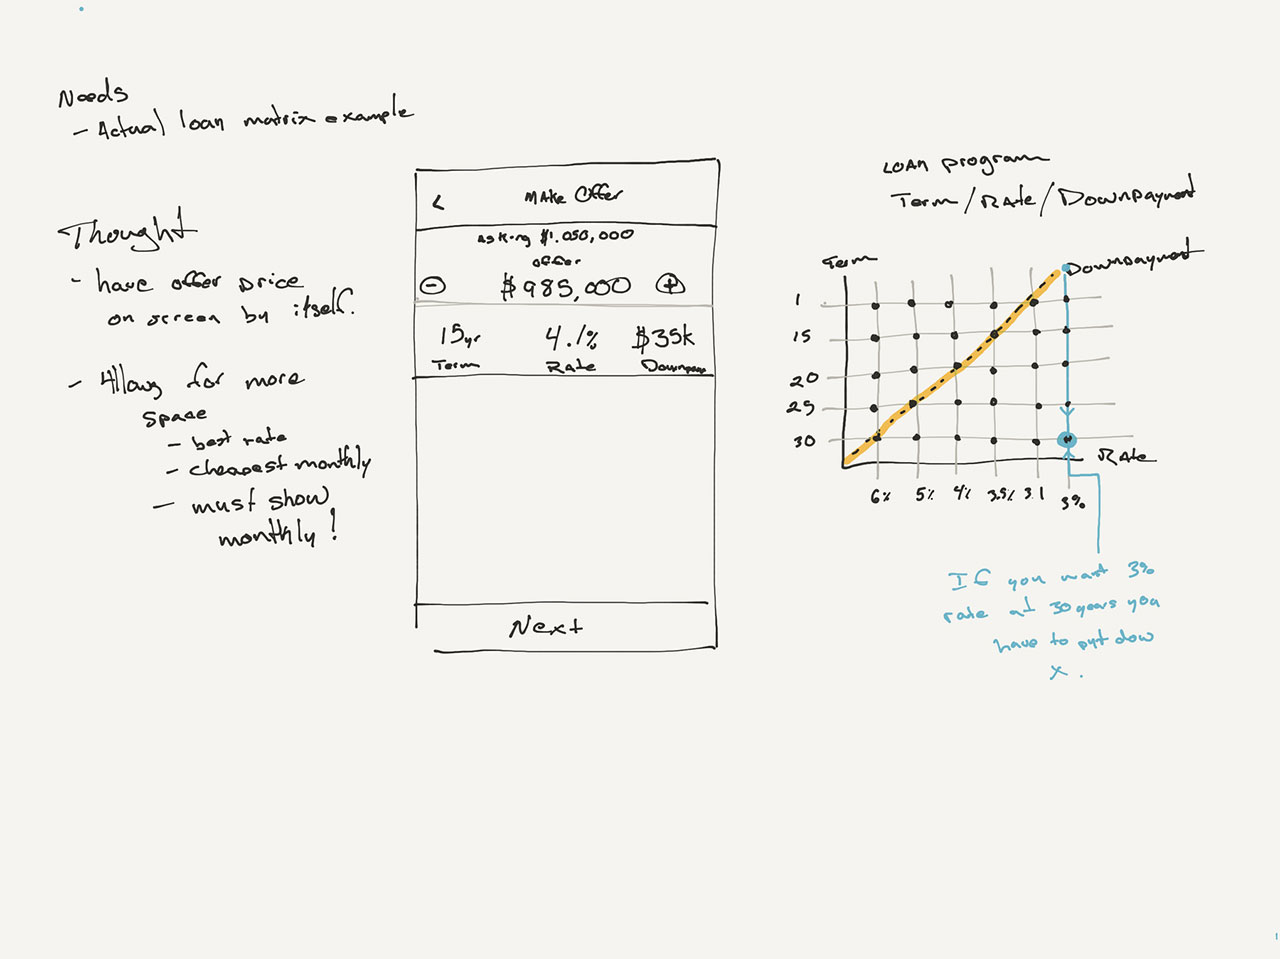 Needs
- Actual loan matrix example
Thought
- have offer price
on screen by itself.
- Allows for more
space
- best rate
- cheapest monthly
- must show
monthly!
<
Make Offer
Asking $1.050,000
offer
- $985,000 +
15yr 4.1% $35k
Term Rate
Next
Loan program
Term/Rate/Downpayment
Term
Downpayment
1
15
20
25
30
Rate
6% 5% 4% 3.5% 3.1 3%
If you want 3%
rate at 30 years you
have to put dow
x.